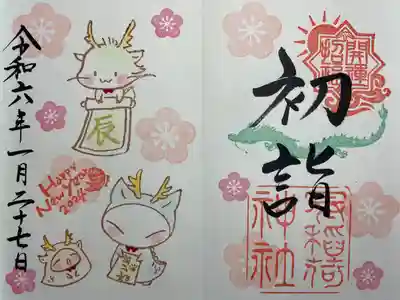 開運
招福
初詣
稲荷
神社
辰
Happy
New Year
2024
令和六年一月二十七日